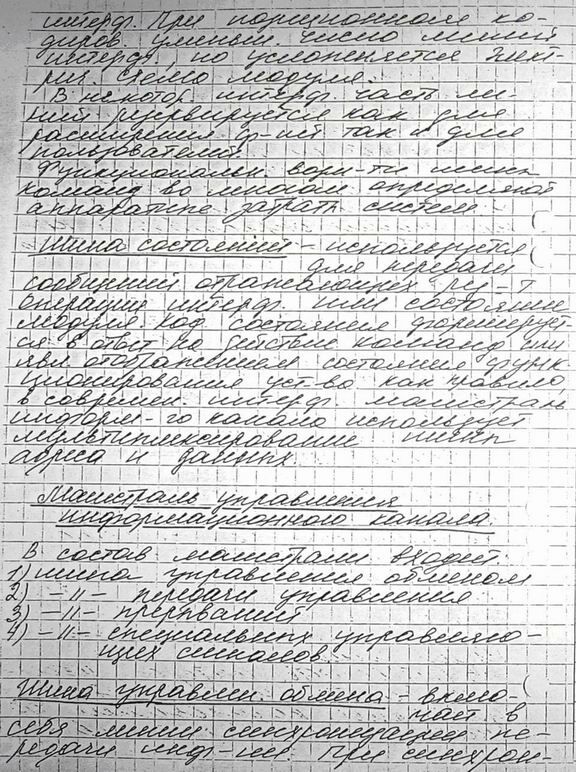 интерф. При порционном ко-
диров. уменьш. число линий
интерф. но усложняется элект-
рич. схема модуля.
В некотор. интерф. часть ли-
ний резервируется как для
расширения ф-ий так и для
пользователей.
Функциональн. вари-ти шины
команд во многом определяют
аппаратные затраты систем
Шина состояний - используется
для передачи
сообщений отражающих рез-т
операции интерф. или состояние
модуля. Код состояния формирует-
ся в ответ на действие команд или
явл отображением состояния функ
ционирования уст-ва как правило
в современ. интерф. магистраль
информ-го канала использует
мультиплексирование шин
адреса и данных.
Магистраль управления
информационного канала.
В состав магистрали входит
1) шина управления обменом
2) -//- передачи управления
3) -//- прерываний
4) -//- специальных управляю-
щих сигналов.
Шина управлен. обмена - вклю-
чает в
себя линии синхронизации пе-
редачи инф-ии. При синхрон-